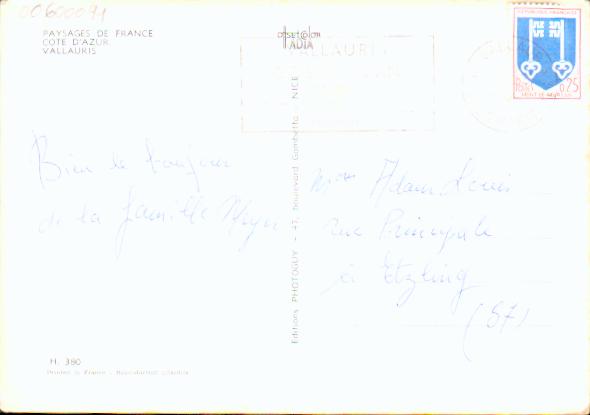 00600091
PAYSAGES DE FRANCE
COTE D'AZUR
VALLAURIS
offset color
ADIA
VALLAURIS
REPUBLIQUE FRANÇAISE
Postes 0,25
MONT-DE-MARSAN
Bien le bonjour
de la famille
Editions PHOTOGUY - 47, boulevard Gambetta - NICE
Mme Adam Louis
rue Principale
à Etzling
(57)
H. 380
Printed in France - Reproduction interdite